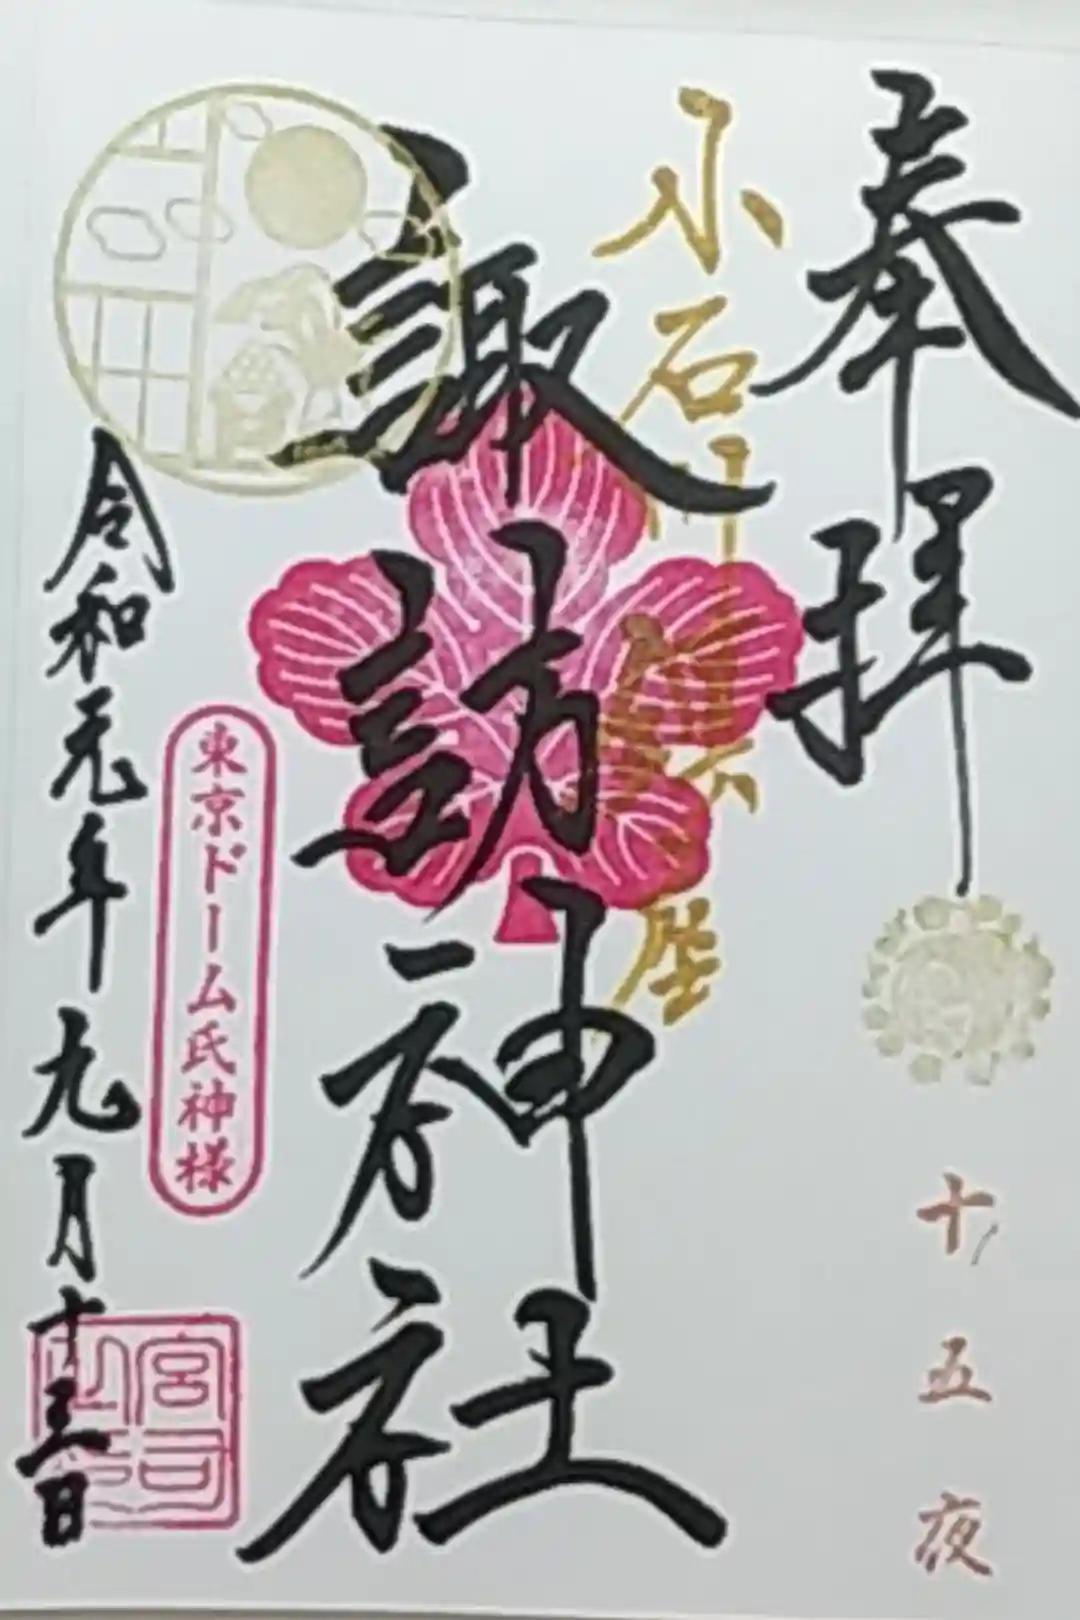 奉拝
小石川
鎮座
諏訪神社
東京ドーム氏神様
令和元年九月十三日
十五夜
宮司